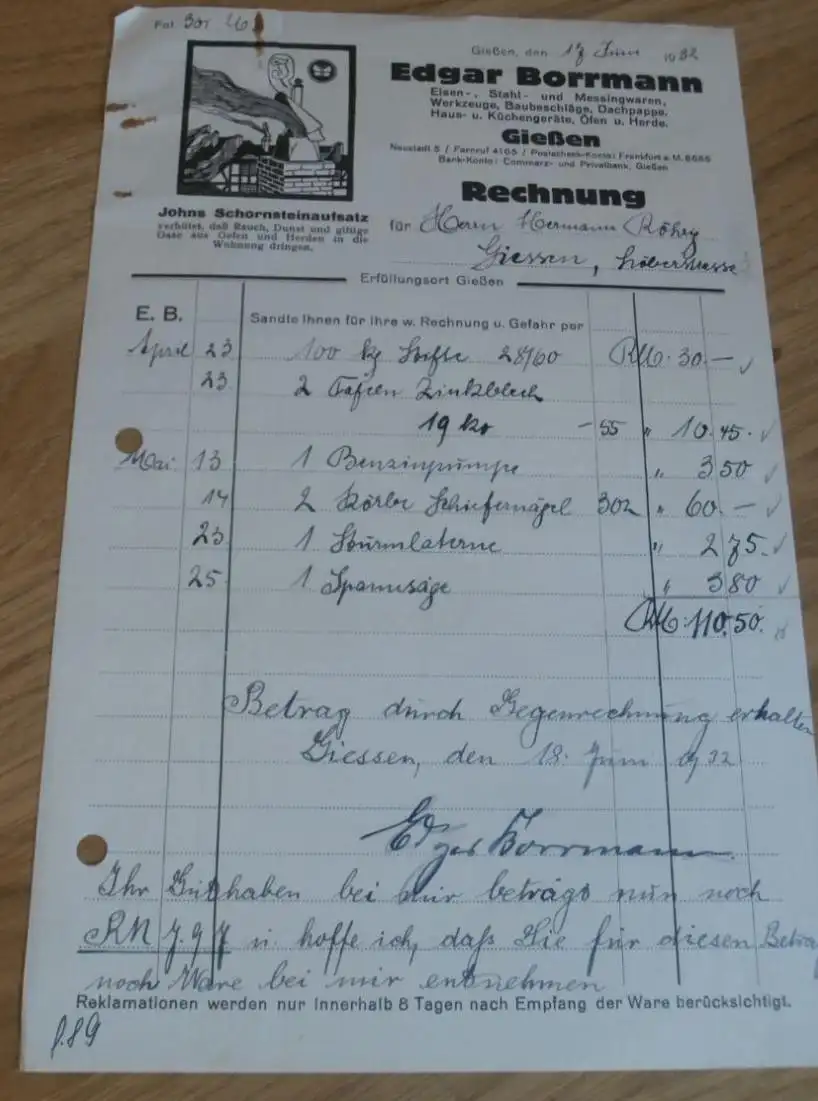 Fol.
Gießen, den 17 Juni 1932
Edgar Borrmann
Eisen-, Stahl- und Messingwaren,
Werkzeuge, Baubeschläge, Dachpappe,
Haus- u. Küchengeräte, Öfen u. Herde.
Gießen
Neustadt 5 / Fernruf 4165 / Postscheck-Konto: Frankfurt a. M. 8686
Bank-Konto: Commerz- und Privatbank, Gießen
Johns Schornsteinaufsatz
verhütet, daß Rauch, Dunst und giftige
Gase aus Oefen und Herden in die
Wohnung dringen.
Rechnung
für Herrn Hermann
Giessen,
Erfüllungsort Gießen
E. B. Sandte Ihnen für Ihre w. Rechnung u. Gefahr per
April 23 100 kg Stifte 28/60 RM. 30.—
23. 2 Tafeln Zinkblech
19 ko —55 " 10.45.
Mai 13 1 Benzinpumpe " 3 50
14 2 Körbe Schiefernägel 302 " 60.—
23 1 Sturmlaterne " 2 75.
25 1 Spannsäge " 3 80
RM: 110.50.
Betrag durch Gegenrechnung erhalten
Giessen, den 18. Juni 1932
Edgar Borrmann
Ihr Guthaben bei mir beträgt nun noch
RM 7.97 u hoffe ich, daß Sie für diesen Betrag
noch Ware bei mir entnehmen
Reklamationen werden nur innerhalb 8 Tagen nach Empfang der Ware berücksichtigt.